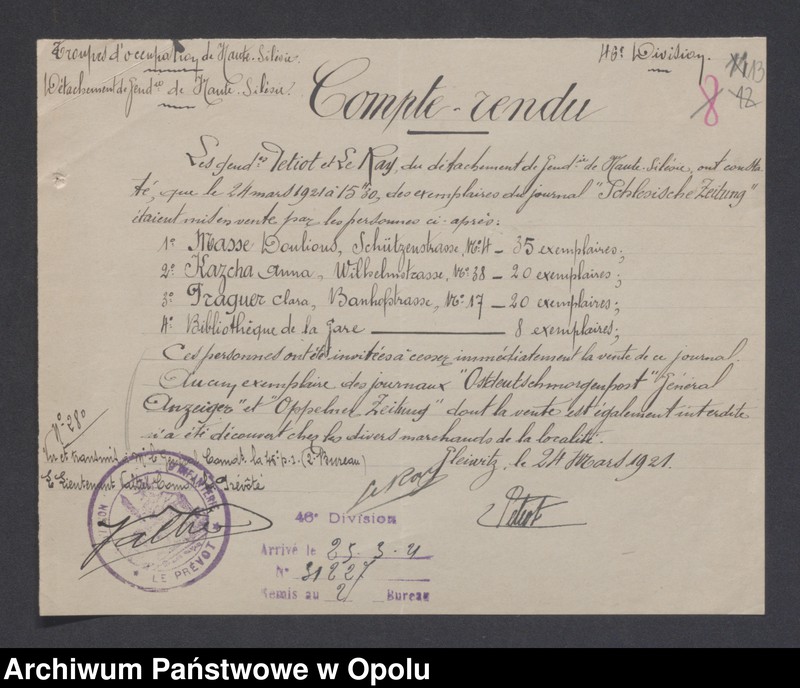 Troupes d'occupation de Haute-Silésie.
46e Division.
Détachement de Gendie de Haute-Silésie.
8
13
12
Compte-rendu
Les gendes Petiot et Le Ray, du détachement de Gendie de Haute-Silésie, ont consta-
té, que le 24 mars 1921 à 15h30, des exemplaires du journal "Schlesische Zeitung"
étaient mis en vente par les personnes ci-après:
1° Masse Doulious, Schützenstrasse, N° 4 - 35 exemplaires;
2° Kazcha Anna, Wilhelmstrasse, N° 38 - 20 exemplaires;
3° Praguer Clara, Banhofstrasse, N° 17 - 20 exemplaires;
4° Bibliothèque de la Gare - 8 exemplaires;
Ces personnes ont été invitées à cesser immédiatement la vente de ce journal.
Aucun exemplaire des journaux "Ostdeutschmorgenpost" "Général
Anzeiger" et "Oppelner Zeitung" dont la vente est également interdite
n'a été découvert chez les divers marchands de la localité.
Gleiwitz, le 24 Mars 1921.
N° 280
Vu et transmis à Mr le Général Comdt la 46e D.I. (2e Bureau)
Le Lieutenant Prévôté
Le Ray
Petiot
D'INFANTERIE
LE PRÉVOT
46e Division
Arrivé le 25-3-21
N° 31227
Remis au 2 Bureau
Archiwum Państwowe w Opolu